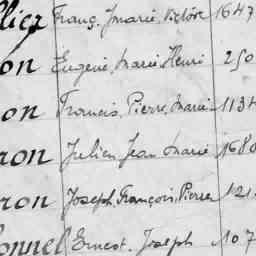 llier Franç. Jmarie, Victore 1647
on Eugène, Marie, Henri 250
on Francis, Pierre, Marie 1134
ron Julien Jean Marie 1680
ron Joseph, François, Pierre 121
onnel Ernest. Joseph 107